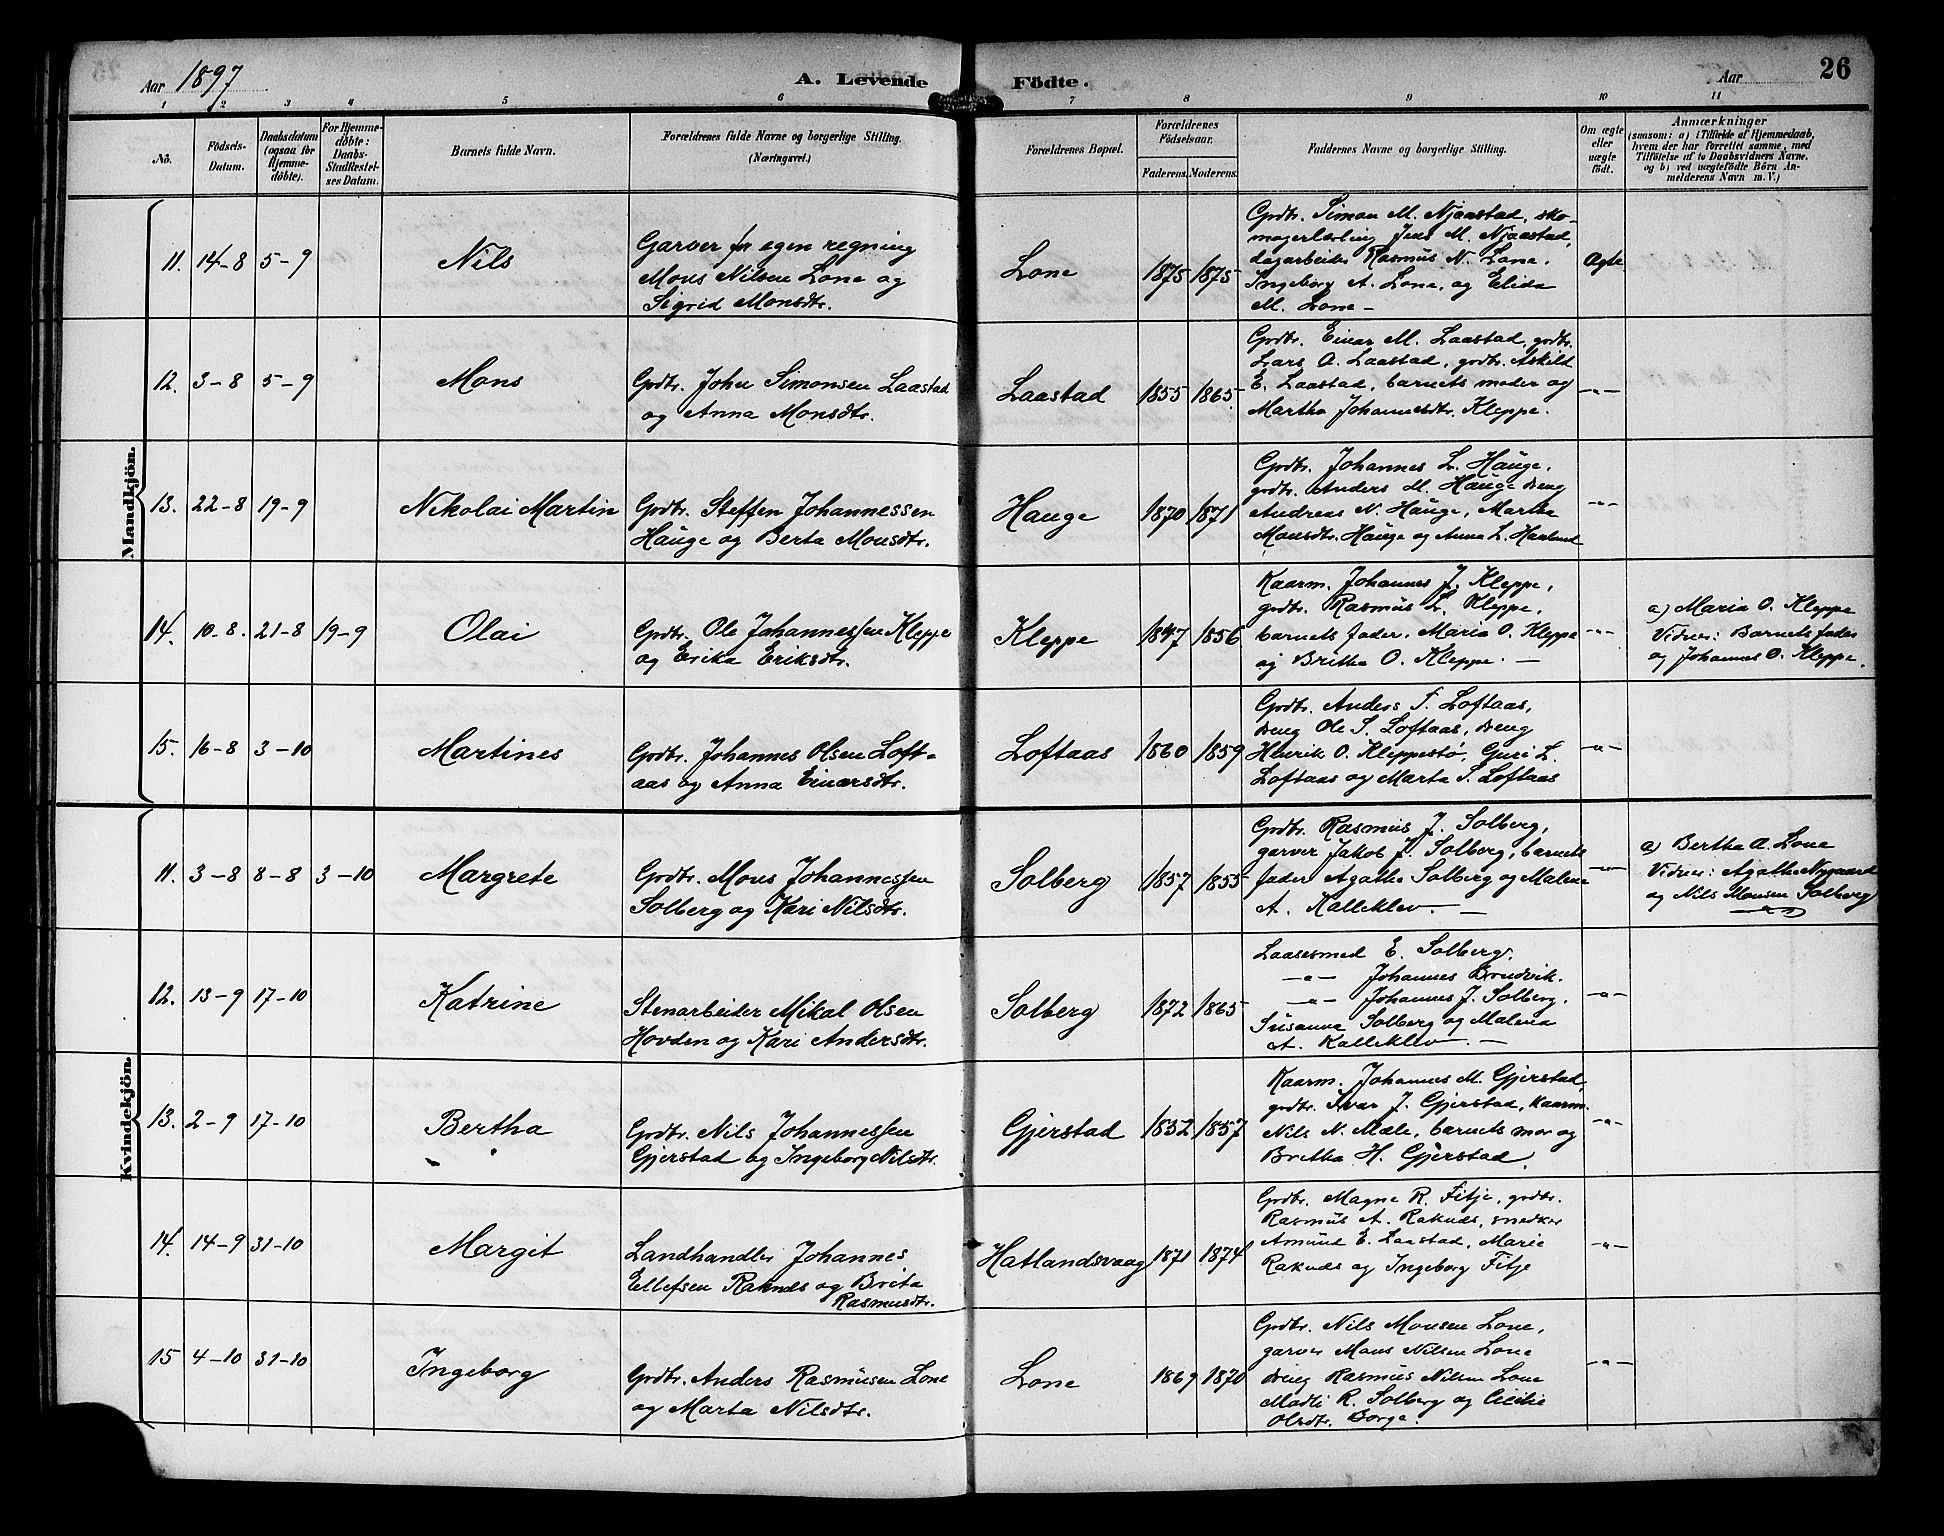 Aar 1897
A. Levende Födte.
Aar
26
1 2 3 4 5 6 7 8 9 10 11
Nô.
Födsels-Datum.
Daabsdatum (ogsaa for Hjemme-döbte).
For Hjemme-döbte: Daabs-Stadfæstel-ses Datum.
Barnets fulde Navn.
Forældrenes fulde Navne og borgerlige Stilling. (Næringsvei.)
Forældrenes Bopæl.
Forældrenes Födselsaar.
Faderens. Moderens.
Faddernes Navne og borgerlige Stilling.
Om ægte eller uægte födt.
Anmærkninger
(saasom: a) i Tilfælde af Hjemmedaab, hvem der har forrettet samme, med Tilföielse af to Daabsvidners Navne, og b) ved uægtefödte Börn An-melderens Navn m. V.)
Mandkjön.
11. 14-8 5-9
Nils
Garver for egen regning
Mons Nilsen Lone og
Sigrid Monsdtr.
Lone
1875 1875
Grdbr. Simon M. Njaastad, sko-
magerlærling Jens M. Njaastad,
dagarbeider Rasmus N. Lone.
Ingeborg A. Lone, og Elida
M. Lone -
Ægte
12. 3-8 5-9
Mons
Grdbr. John Simonsen Laastad
og Anna Monsdtr.
Laastad
1855 1865
Grdbr. Einar M. Laastad, grdbr.
Lars O. Laastad, grdbr. Askild
E. Laastad, barnets moder og
Martha Johannesdtr. Kleppe.
-"-
13. 22-8 19-9
Nikolai Martin
Grdbr. Steffen Johannessen
Hauge og Berta Monsdtr.
Hauge
1870 1871
Grdbr. Johannes L. Hauge,
grdbr. Anders M. Hauge dreng
Andreas N. Hauge, Martha
Monsdtr. Hauge og Anna L. Haaland
-"-
14. 10-8. 21-8 19-9
Olai
Grdbr. Ole Johannessen Kleppe
og Erika Eriksdtr.
Kleppe
1847 1856
Kaarm. Johannes J. Kleppe,
grdbr. Rasmus L. Kleppe,
barnets fader, Maria O. Kleppe
og Britha O. Kleppe. -
-"-
a) Maria O. Kleppe
Vidner: Barnets fader
og Johannes O. Kleppe.
15. 16-8 3-10
Martines
Grdbr. Johannes Olsen Loft-
aas og Anna Einarsdtr.
Loftaas
1860 1859
Grdbr. Anders S. Loftaas,
dreng Ole S. Loftaas, dreng
Henrik O. Kleppestø, Guri L.
Loftaas og Marta S. Loftaas
-"-
Kvindekjön.
11. 3-8 8-8 3-10
Margrete
Grdbr. Mons Johannessen
Solberg og Kari Nilsdtr.
Solberg
1857 1855
Grdbr. Rasmus J. Solberg,
garver Jakob J. Solberg, barnets
fader Agathe Solberg og Malena
A. Kalleklev. -
-"-
a) Bertha A. Lone
Vidner: Agathe Nygaard
og Nils Monsen Solberg
12. 13-9 17-10
Katrine
Stenarbeider Mikal Olsen
Hovden og Kari Andersdtr.
Solberg
1872 1865
Laasesmed E. Solberg.
-"- Johannes Brudvik.
-"- Johannes J. Solberg.
Susanna Solberg og Malena
A. Kalleklev. -
-"-
13. 2-9 17-10
Bertha
Grdbr. Nils Johannessen
Gjerstad og Ingeborg Nilsdtr.
Gjerstad
1852 1857
Kaarm. Johannes M. Gjerstad,
grdbr. Ivar J. Gjerstad, kaarm.
Nils N. Mæle, barnets mor og
Britha H. Gjerstad.
-"-
14. 14-9 31-10
Margit
Landhandler Johannes
Ellefsen Raknes og Brita
Rasmusdtr.
Hatlandsvaag
1871 1874
Grdbr. Magne R. Fitje, grdbr.
Rasmus A. Raknes, snedker
Amund E. Laastad, Marie
Raknes og Ingeborg Fitje
-"-
15 4-10 31-10
Ingeborg
Grdbr. Anders Rasmusen Lone
og Marta Nilsdtr.
Lone
1869 1870
Grdbr. Nils Monsen Lone,
garver Mons Nilsen Lone
dreng Rasmus Nilsen Lone
Madli R. Solberg og Cicilie
Olsdtr. Borge.
-"-